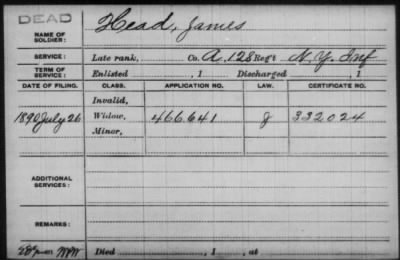 DEAD
NAME OF SOLDIER: Head, James
SERVICE: Late rank, Co. A, 128 Reg't N.Y. Inf
TERM OF SERVICE: Enlisted , 1 Discharged , 1
DATE OF FILING. CLASS. APPLICATION NO. LAW. CERTIFICATE NO.
Invalid,
1890 July 26 Widow, 466.641 J 332024
Minor,
ADDITIONAL SERVICES:
REMARKS:
Died , 1 , at